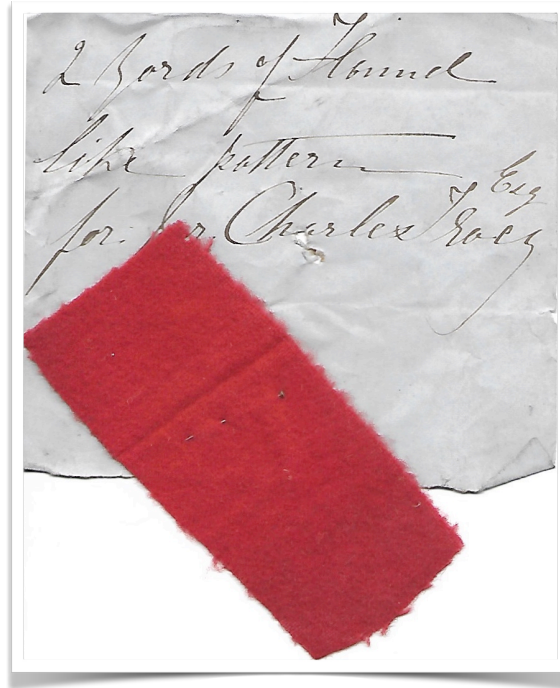 2 yards of Flannel
like pattern
for. Charles Esq